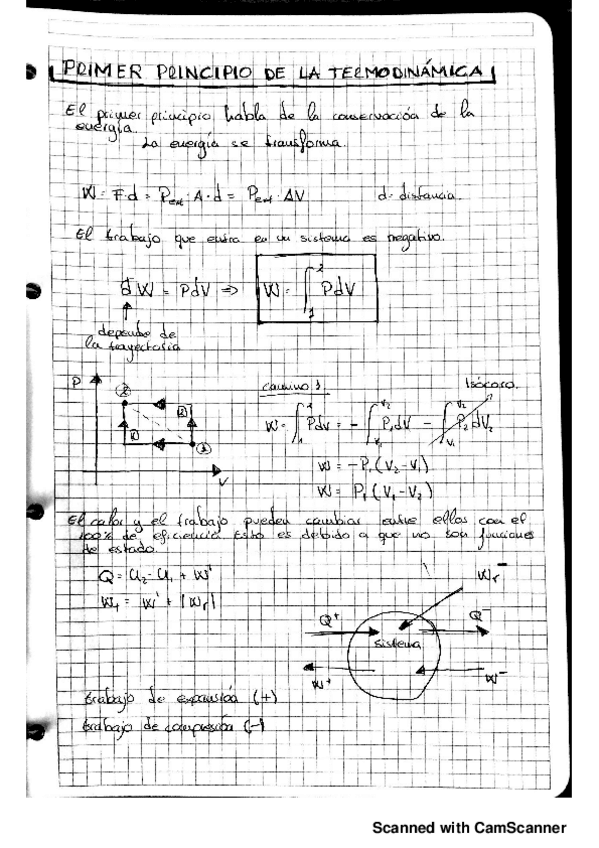 PRIMER PRINCIPIO DE LA TERMODINÁMICA
El primer principio habla de la conservación de la
energía.
La energía se transforma.
W = F·d = Pext · A · d = Pext · ΔV d = distancia.
El trabajo que entra en un sistema es negativo.
đW = PdV ⇒ W = ∫₁² PdV
depende de
la trayectoria
P
②
①
V
camino 1
Isócoro.
W = ∫₁² Pdv = - ∫ P₁dV - ∫ P₂dV₂
W = -P₁ (V₂-V₁)
W = P₁ (V₁-V₂)
El calor y el trabajo pueden cambiar entre ellos con el
100% de eficiencia. Esto es debido a que no son funciones
de estado.
Q = U₂ - U₁ + W'
W₁ = W' + |Wr|
Wr⁻
Q⁺
Q⁻
sistema
W⁺
W⁻
trabajo de expansión (+)
trabajo de compresión (-)
Scanned with CamScanner